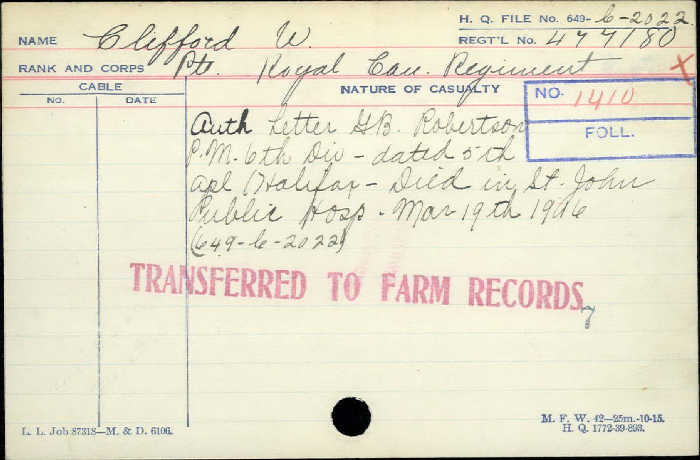 H. Q. FILE No. 649- 6-2022.
NAME Clifford W. REGT'L No. 477180
RANK AND CORPS Pte. Royal Can. Regiment X
CABLE
No. DATE
NATURE OF CASUALTY
NO. 1410
FOLL.
Auth Letter G.B. Robertson
P.M. 6th Div - dated 5th
apl (Halifax - Died in St. John
Public Hosp. Mar 19th 1916
(649-6-2022)
TRANSFERRED TO FARM RECORDS
7
L. L. Job 87318—M. & D. 6106.
M. F. W. 42—25m.-10-15.
H. Q. 1772-39-893.